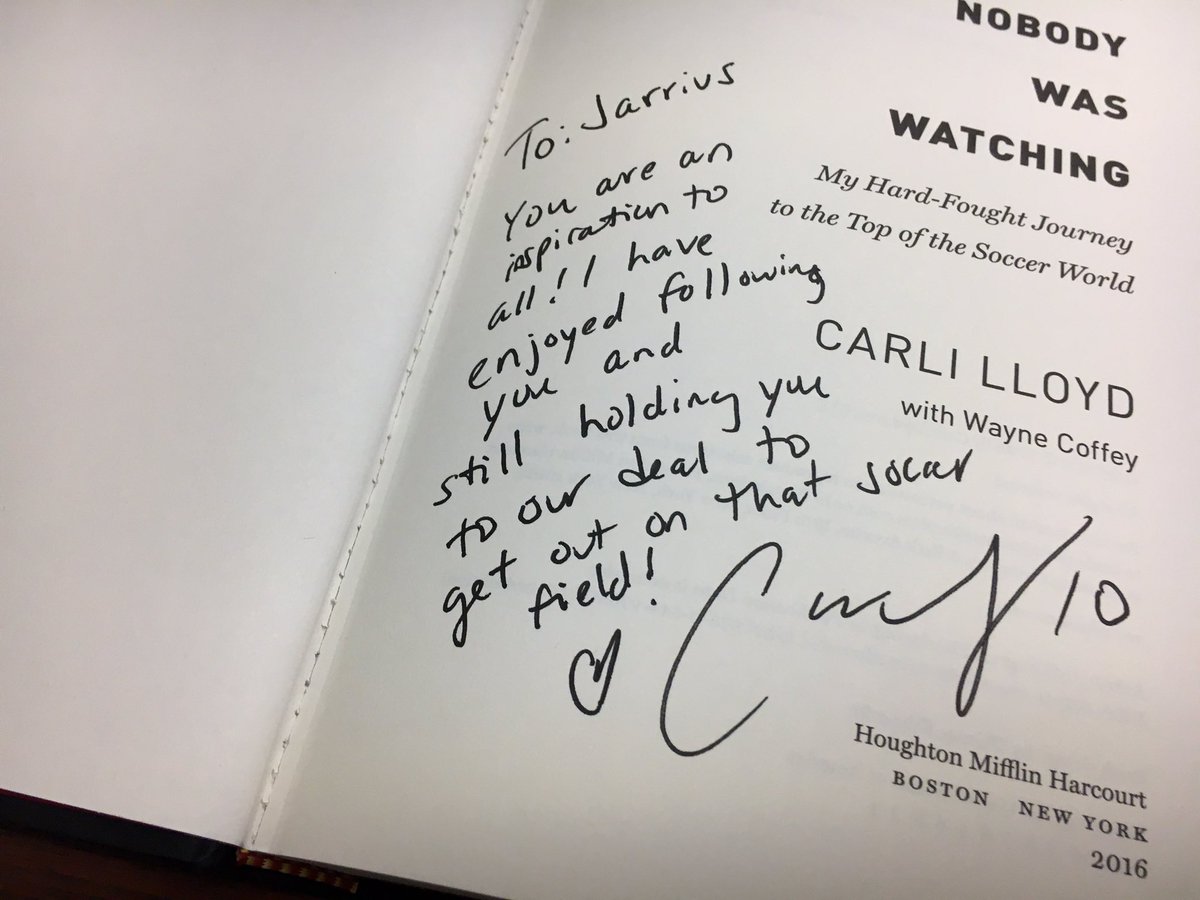 NOBODY
WAS
WATCHING
My Hard-Fought Journey
to the Top of the Soccer World
CARLI LLOYD
with Wayne Coffey
To: Jarrius
You are an
inspiration to
all! I have
enjoyed following
you and
still holding you
to our deal to
get out on that soccer
field!
10
Houghton Mifflin Harcourt
BOSTON NEW YORK
2016